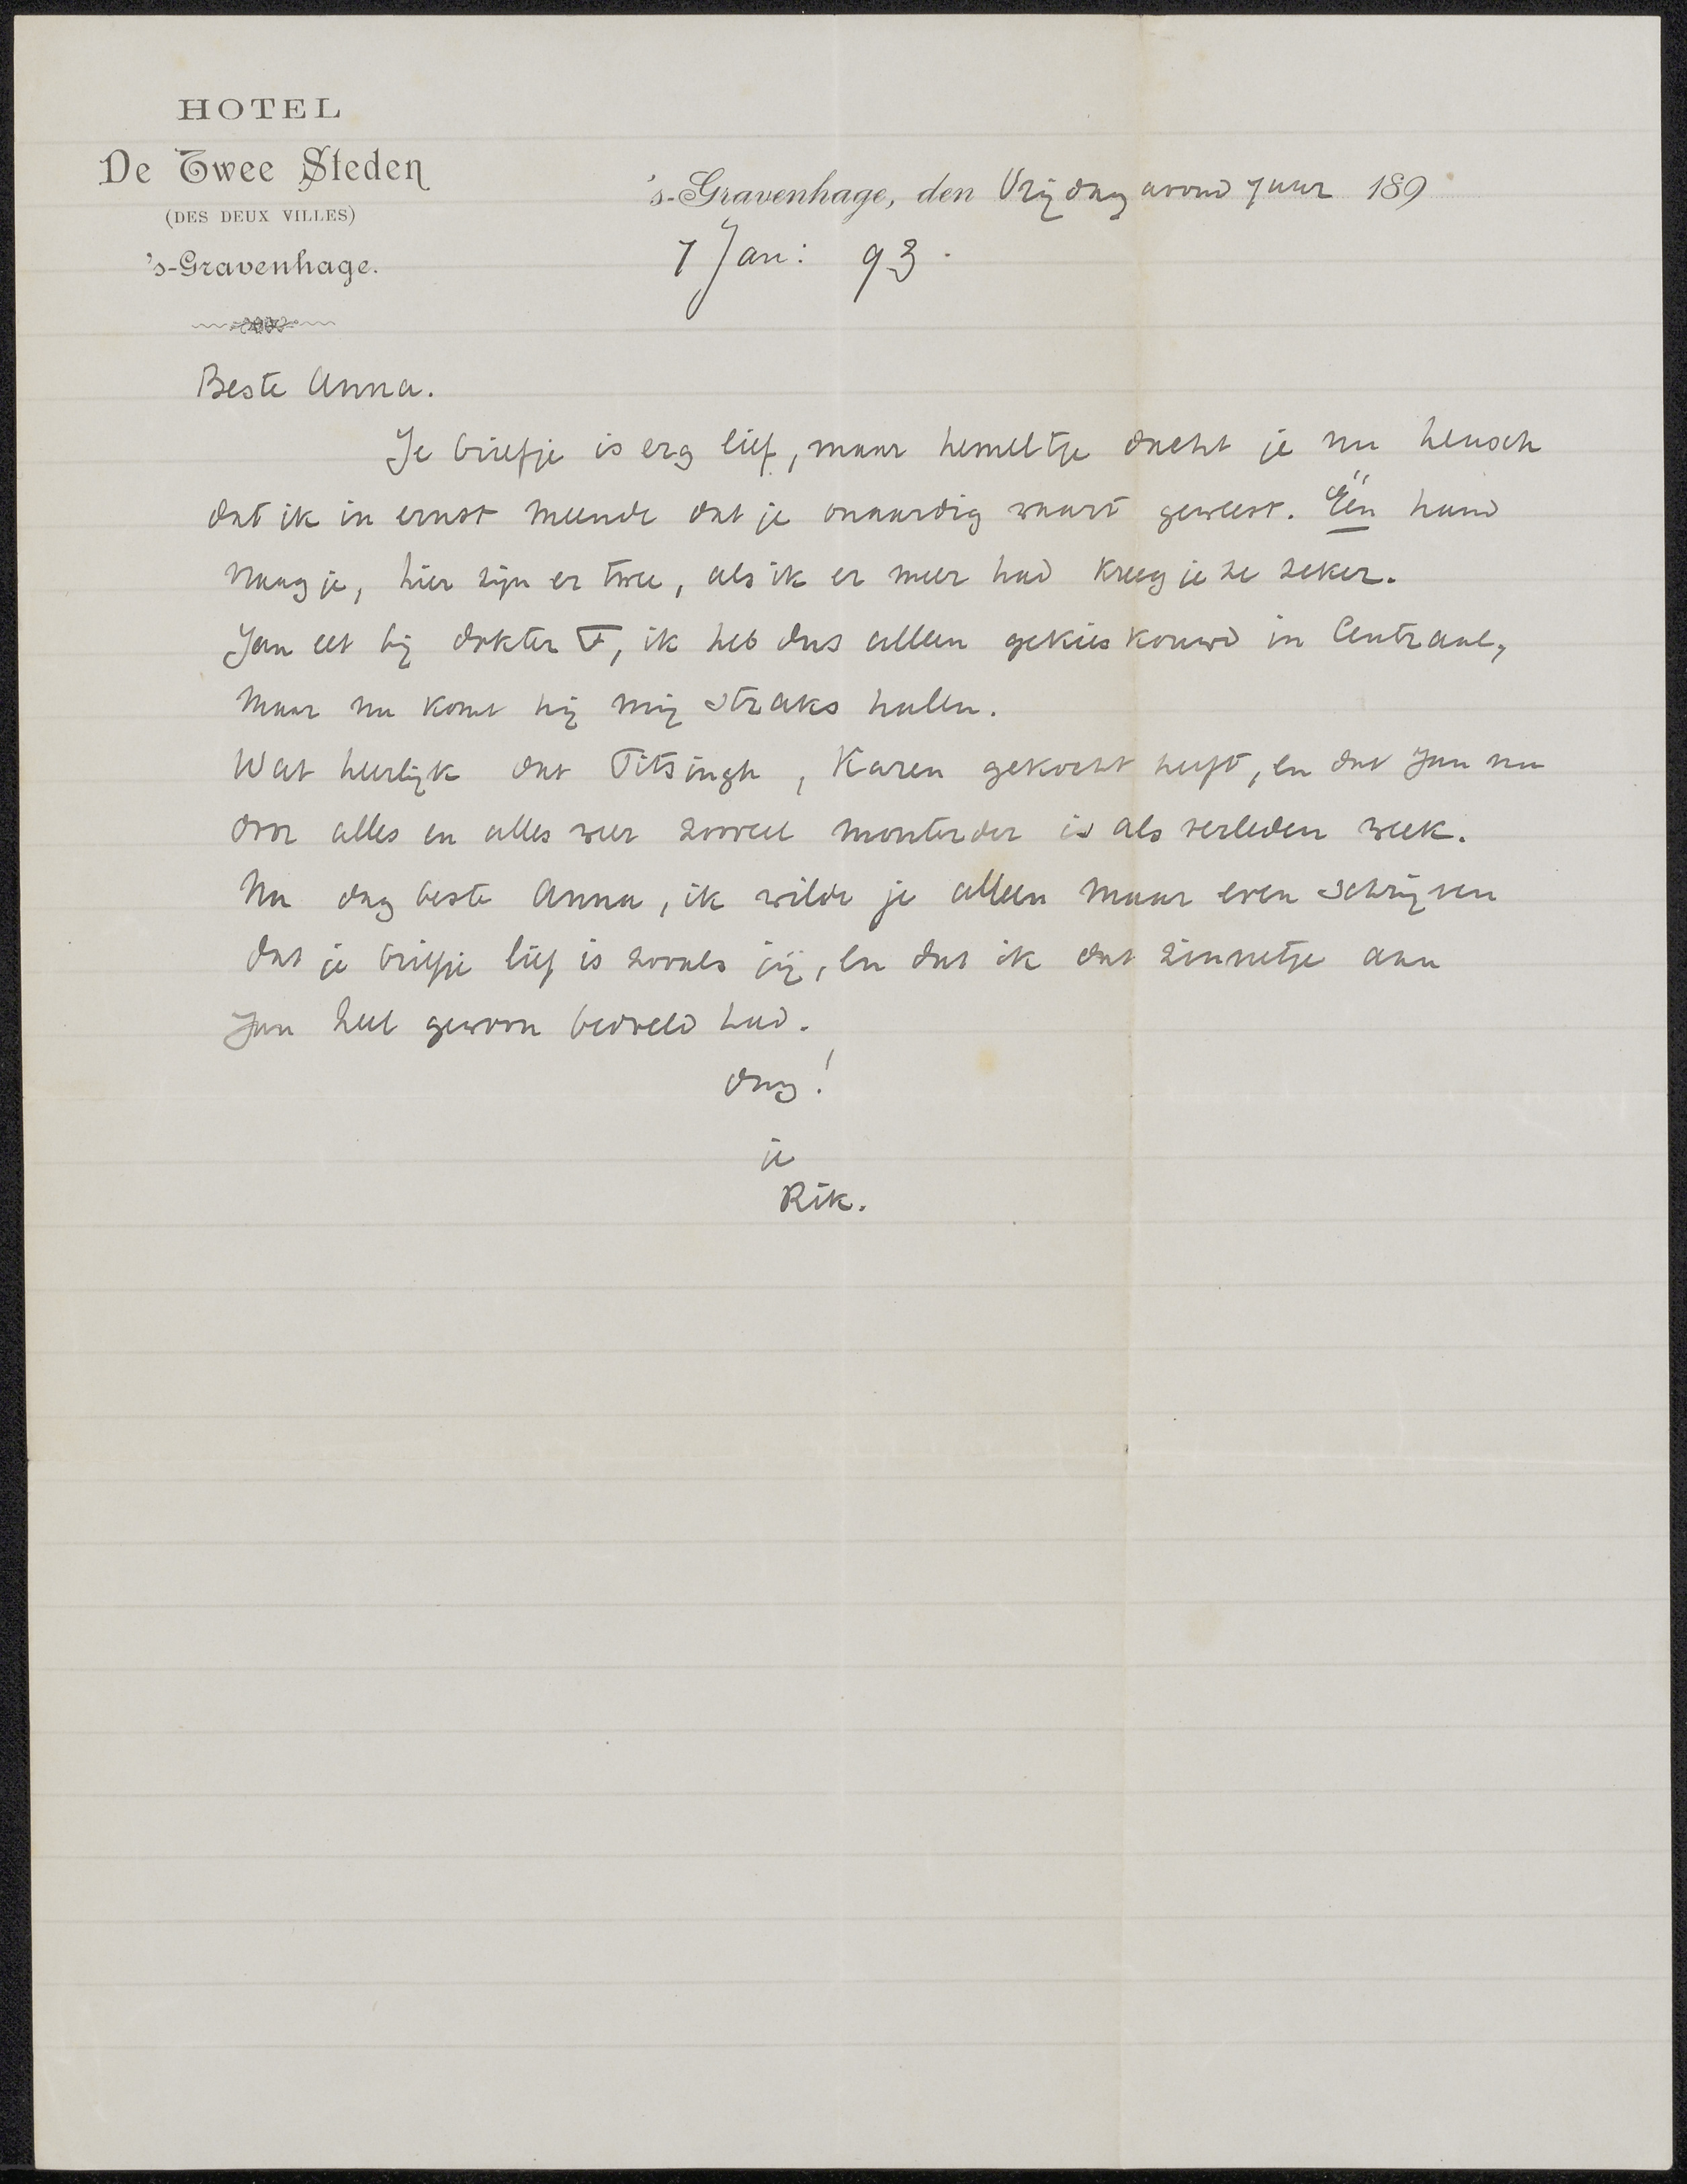 HOTEL
De Twee Steden
(DES DEUX VILLES)
's-Gravenhage.
's-Gravenhage, den Vrijdag avond 7 uur 189
7 Jan: 93.
Beste Anna.
Je briefje is erg lief, maar hemeltje dacht je nu heusch
dat ik in ernst meende dat je onaardig waart geweest. Één hand
vraag je, hier zijn er twee, als ik er meer had kreeg je ze zeker.
Jan eet bij dokter F, ik heb dus alleen gekieskouwd in Centraal,
maar nu komt hij mij straks halen.
Wat heerlijk dat Titsingh, Karen gekocht heeft, en dat Jan nu
door alles en alles weer zooveel monterder is als verleden week.
Nu dag beste Anna, ik wilde je alleen maar even schrijven
dat je briefje lief is zooals jij, en dat ik dat zinnetje aan
Jan heel gewoon bedoeld had.
dag!
je
Rik.